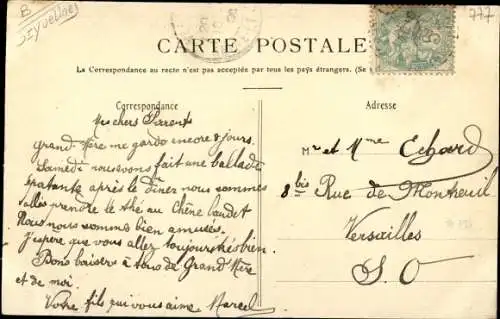 B
Seyvelines
777
CARTE POSTALE
La Correspondance au recto n'est pas acceptée par tous les pays étrangers. (Se
Correspondance
Adresse
Mes chers Parents
Grand Mère me garde encore 8 jours.
Samedi nous avons fait une ballade
épatante après le diner nous sommes
allés prendre le thé au Chêne baudet
Nous nous sommes bien amusés.
J'espère que vous allez toujours très bien
Bons baisers à tous de Grand Mère
et de moi.
Votre fils qui vous aime Marcel
Mr et Mme Echard
8 bis Rue de Montreuil
Versailles
S. O